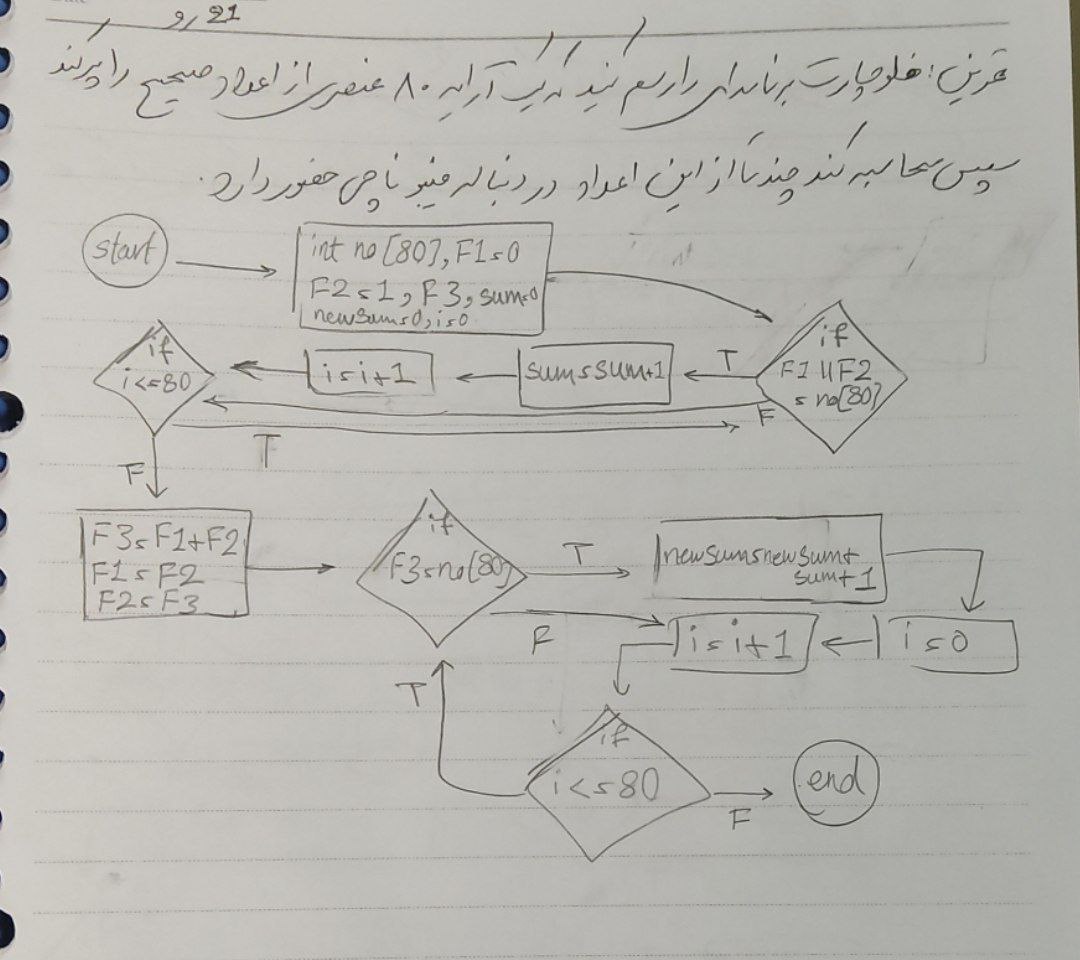 21
تمرین: فلوچارت برنامه‌ای را رسم کنید که یک آرایه ۸۰ عنصری از اعداد صحیح را پر کند
سپس محاسبه کند چند تا از این اعداد در دنباله فیبوناچی حضور دارد.
start
int no [80], F1=0
F2=1, F3, sum=0
newsum=0, i=0
if
F1 || F2
= no[80]
T
sum=sum+1
i=i+1
if
i<=80
F
T
F
F3=F1+F2
F1=F2
F2=F3
if
F3=no[80]
T
newsum=newsum+
sum+1
F
i=i+1
i=0
T
if
i<=80
F
end